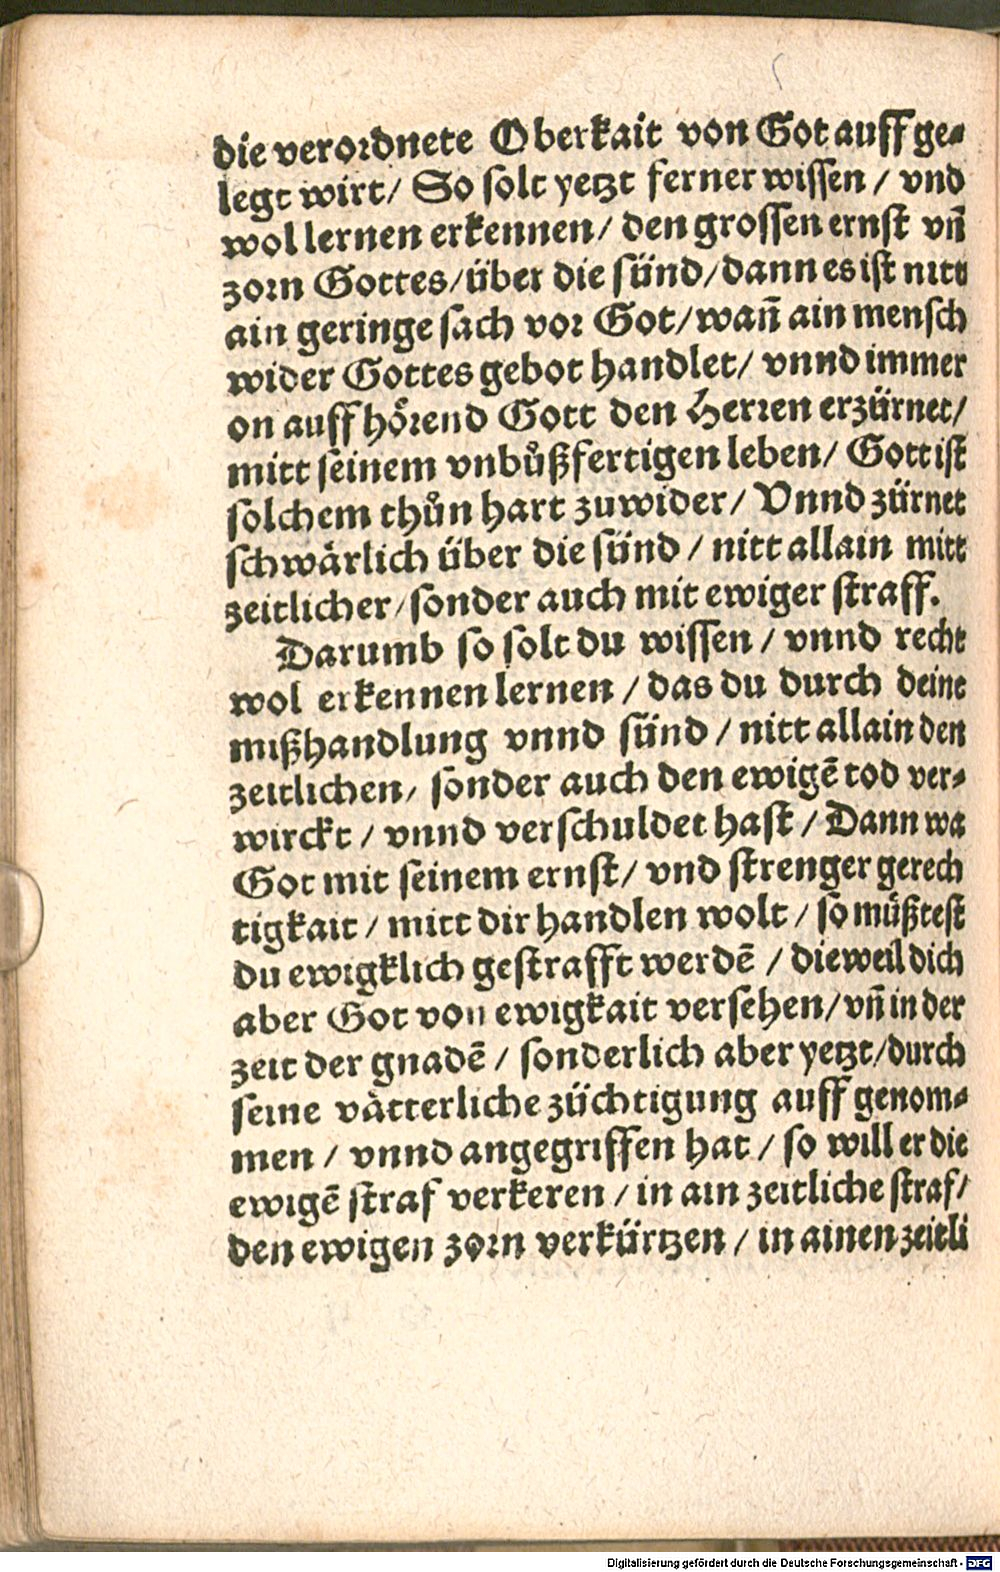 die verordnete Oberkait von Got auff ge-
legt wirt/ So solt yetzt ferner wissen / vnd
wol lernen erkennen/ den grossen ernst vñ
zorn Gottes/über die sünd/dann es ist nitt
ain geringe sach vor Got/wañ ain mensch
wider Gottes gebot handlet/ vnnd immer
on auff hoͤrend Gott den Herren erzürnet/
mitt seinem vnbuͦßfertigen leben/ Gott ist
solchem thuͦn hart zuwider/ Vnnd zürnet
schwaͤrlich über die sünd / nitt allain mitt
zeitlicher/sonder auch mit ewiger straff.
Darumb so solt du wissen / vnnd recht
wol erkennen lernen / das du durch deine
mißhandlung vnnd sünd / nitt allain den
zeitlichen/ sonder auch den ewigē tod ver-
wirckt / vnnd verschuldet hast / Dann wa
Got mit seinem ernst/ vnd strenger gerech
tigkait / mitt dir handlen wolt / so müßtest
du ewigklich gestrafft werdē / dieweil dich
aber Got von ewigkait versehen/vñ in der
zeit der gnadē / sonderlich aber yetzt/durch
seine vaͤtterliche züchtigung auff genom-
men / vnnd angegriffen hat / so will er die
ewigē straf verkeren / in ain zeitliche straf/
den ewigen zorn verkürtzen / in ainen zeitli
Digitalisierung gefördert durch die Deutsche Forschungsgemeinschaft - DFG